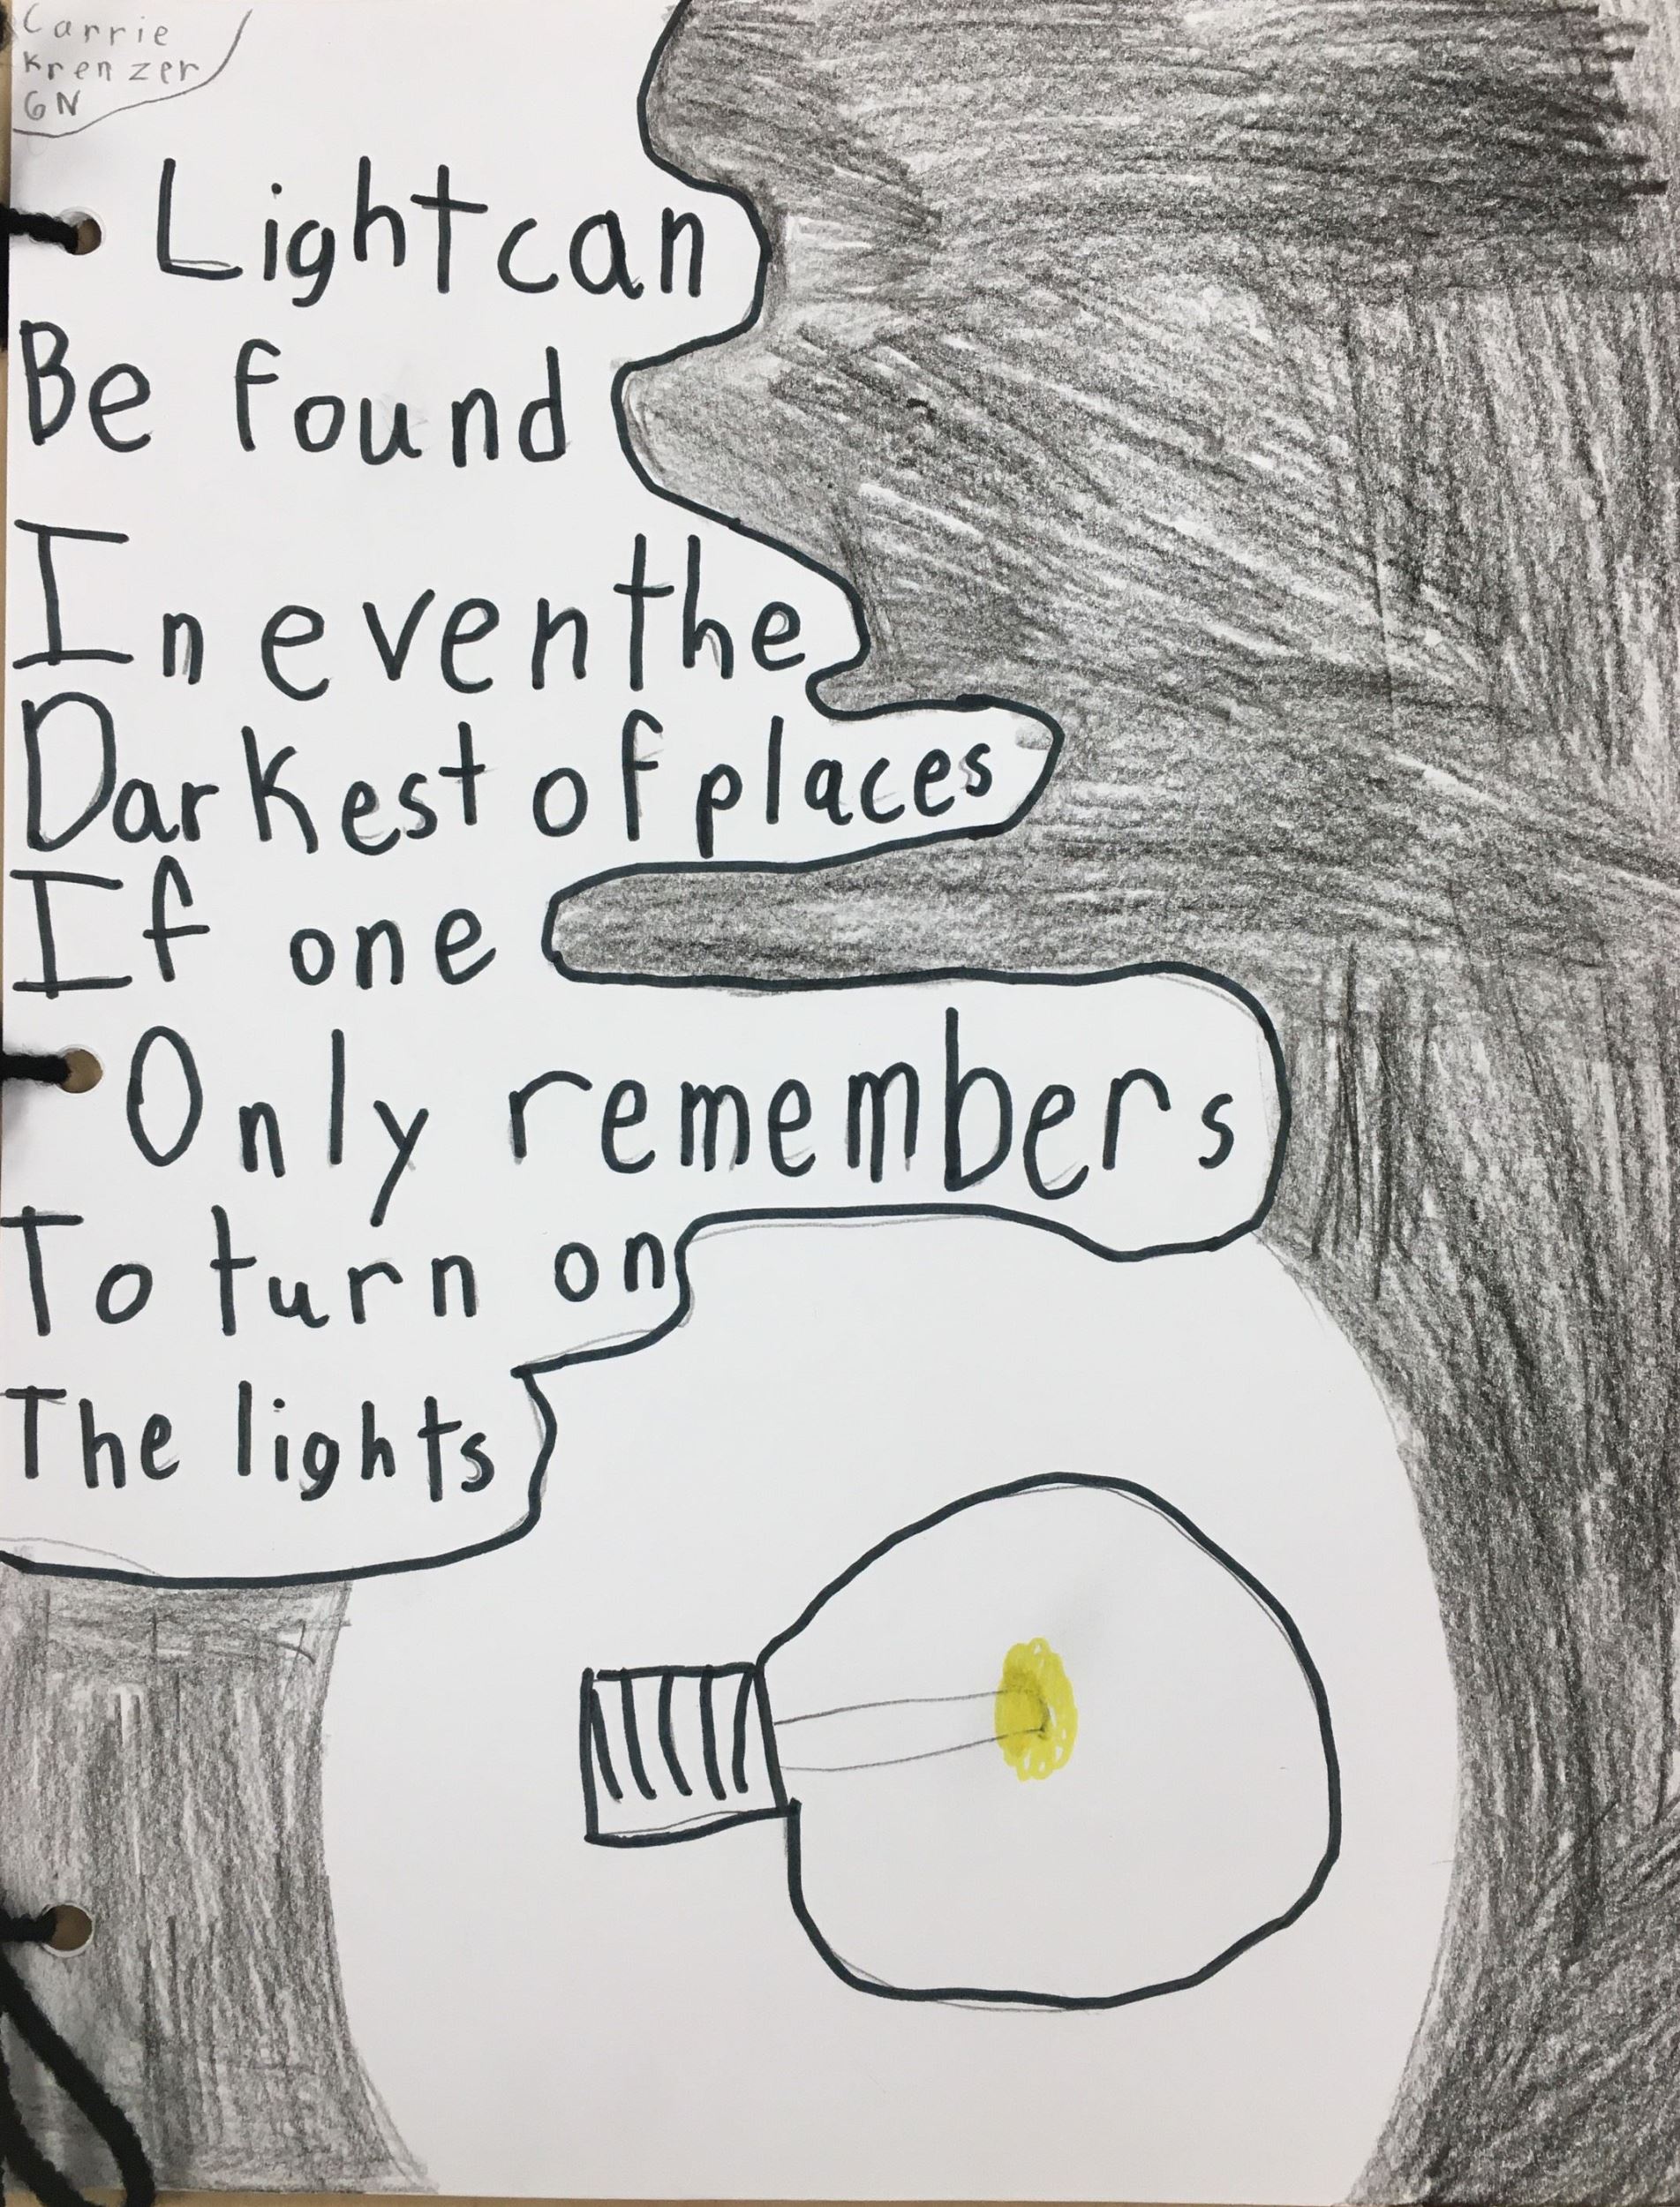 Carrie
Krenzer
6N
Light can
Be found
In even the
Darkest of places
If one
Only remembers
To turn on
The lights